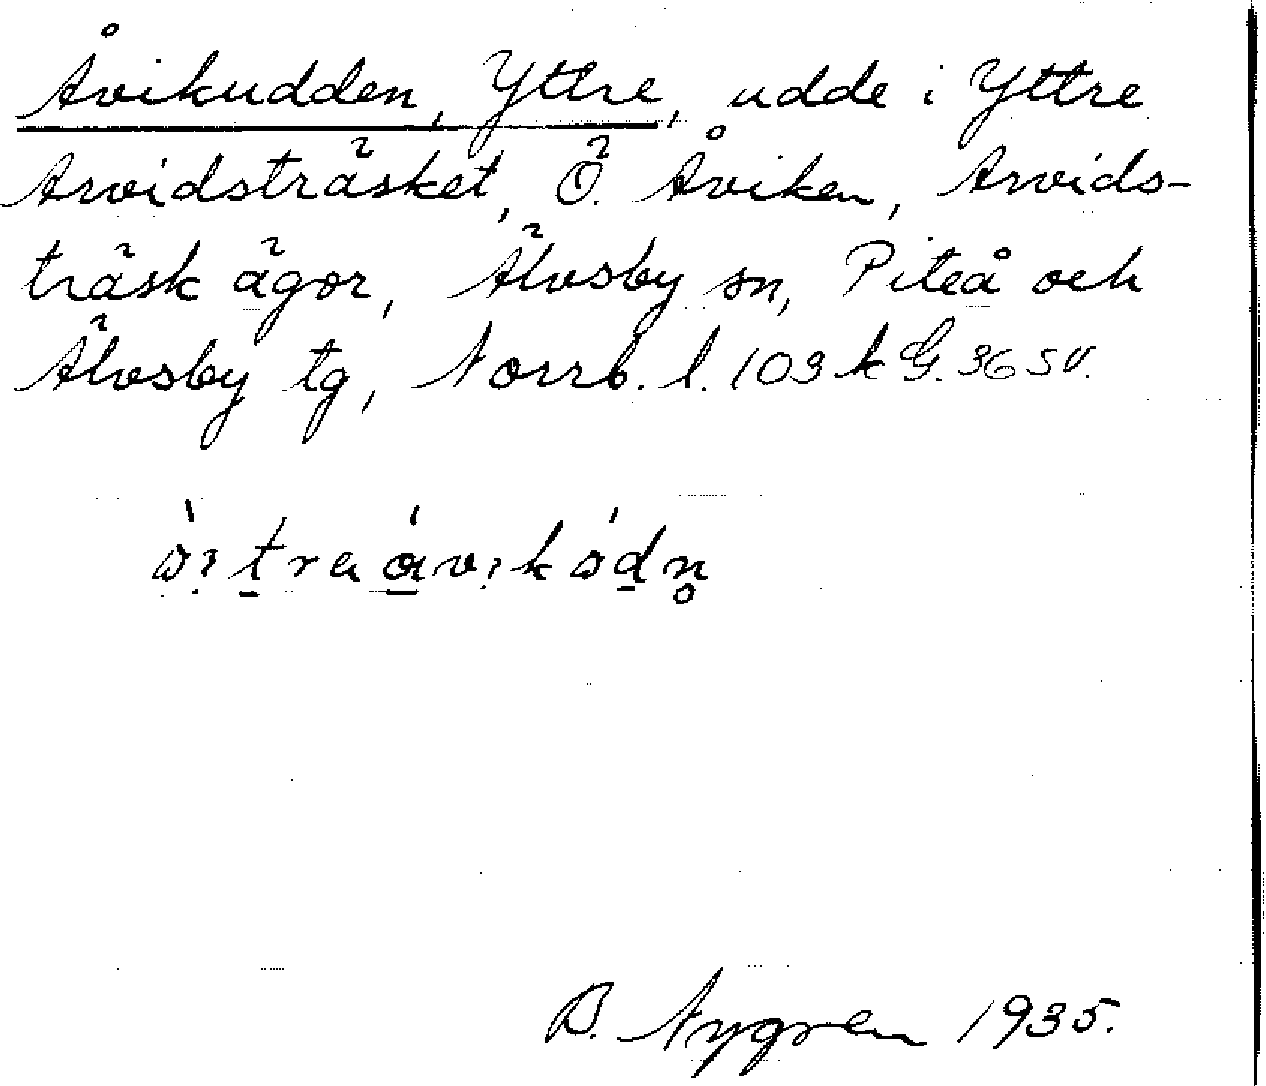 Åvikudden, Yttre, udde i Yttre
Arvidsträsket, Ö. Åviken, Arvids-
träsk ägor, Älvsby sn, Piteå och
Älvsby tg, Norrb. l. 103 k G. 36 SV.
B. Nygren 1935.